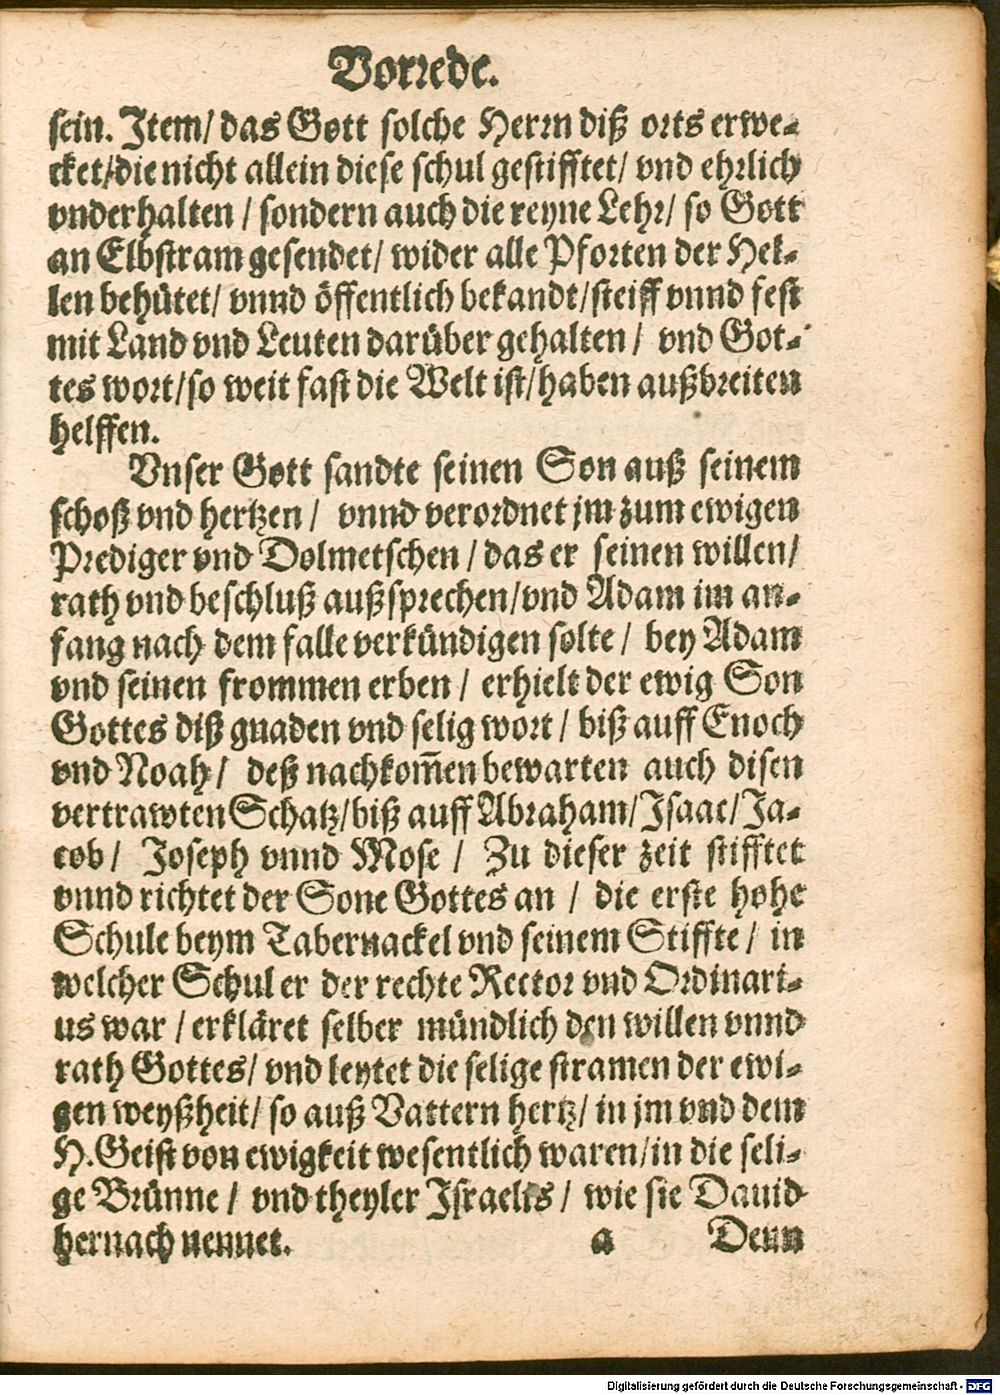 Vorrede.
sein. Item/ das Gott solche Herrn diß orts erwe-
cket/die nicht allein diese schul gestifftet/ vnd ehrlich
vnderhalten / sondern auch die reyne Lehr/ so Gott
an Elbstram gesendet/ wider alle Pforten der Hel-
len behütet/ vnnd öffentlich bekandt/steiff vnnd fest
mit Land vnd Leuten darüber gehalten / vnd Got-
tes wort/so weit fast die Welt ist/haben außbreiten
helffen.
Vnser Gott sandte seinen Son auß seinem
schoß vnd hertzen / vnnd verordnet jm zum ewigen
Prediger vnd Dolmetschen / das er seinen willen/
rath vnd beschluß außsprechen/vnd Adam im an-
fang nach dem falle verkündigen solte / bey Adam
vnd seinen frommen erben / erhielt der ewig Son
Gottes diß gnaden vnd selig wort / biß auff Enoch
vnd Noah / deß nachkom̃en bewarten auch disen
vertrawten Schatz/biß auff Abraham/Isaac/Ja-
cob / Joseph vnnd Mose / Zu dieser zeit stifftet
vnnd richtet der Sone Gottes an / die erste hohe
Schule beym Tabernackel vnd seinem Stiffte / in
welcher Schul er der rechte Rector vnd Ordinari-
us war / erkläret selber mündlich den willen vnnd
rath Gottes/ vnd leytet die selige stramen der ewi-
gen weyßheit/ so auß Vattern hertz/ in jm vnd dem
H. Geist von ewigkeit wesentlich waren/in die seli-
ge Brünne / vnd theyler Israelis / wie sie Dauid
hernach nennet. a Denn
Digitalisierung gefördert durch die Deutsche Forschungsgemeinschaft - DFG